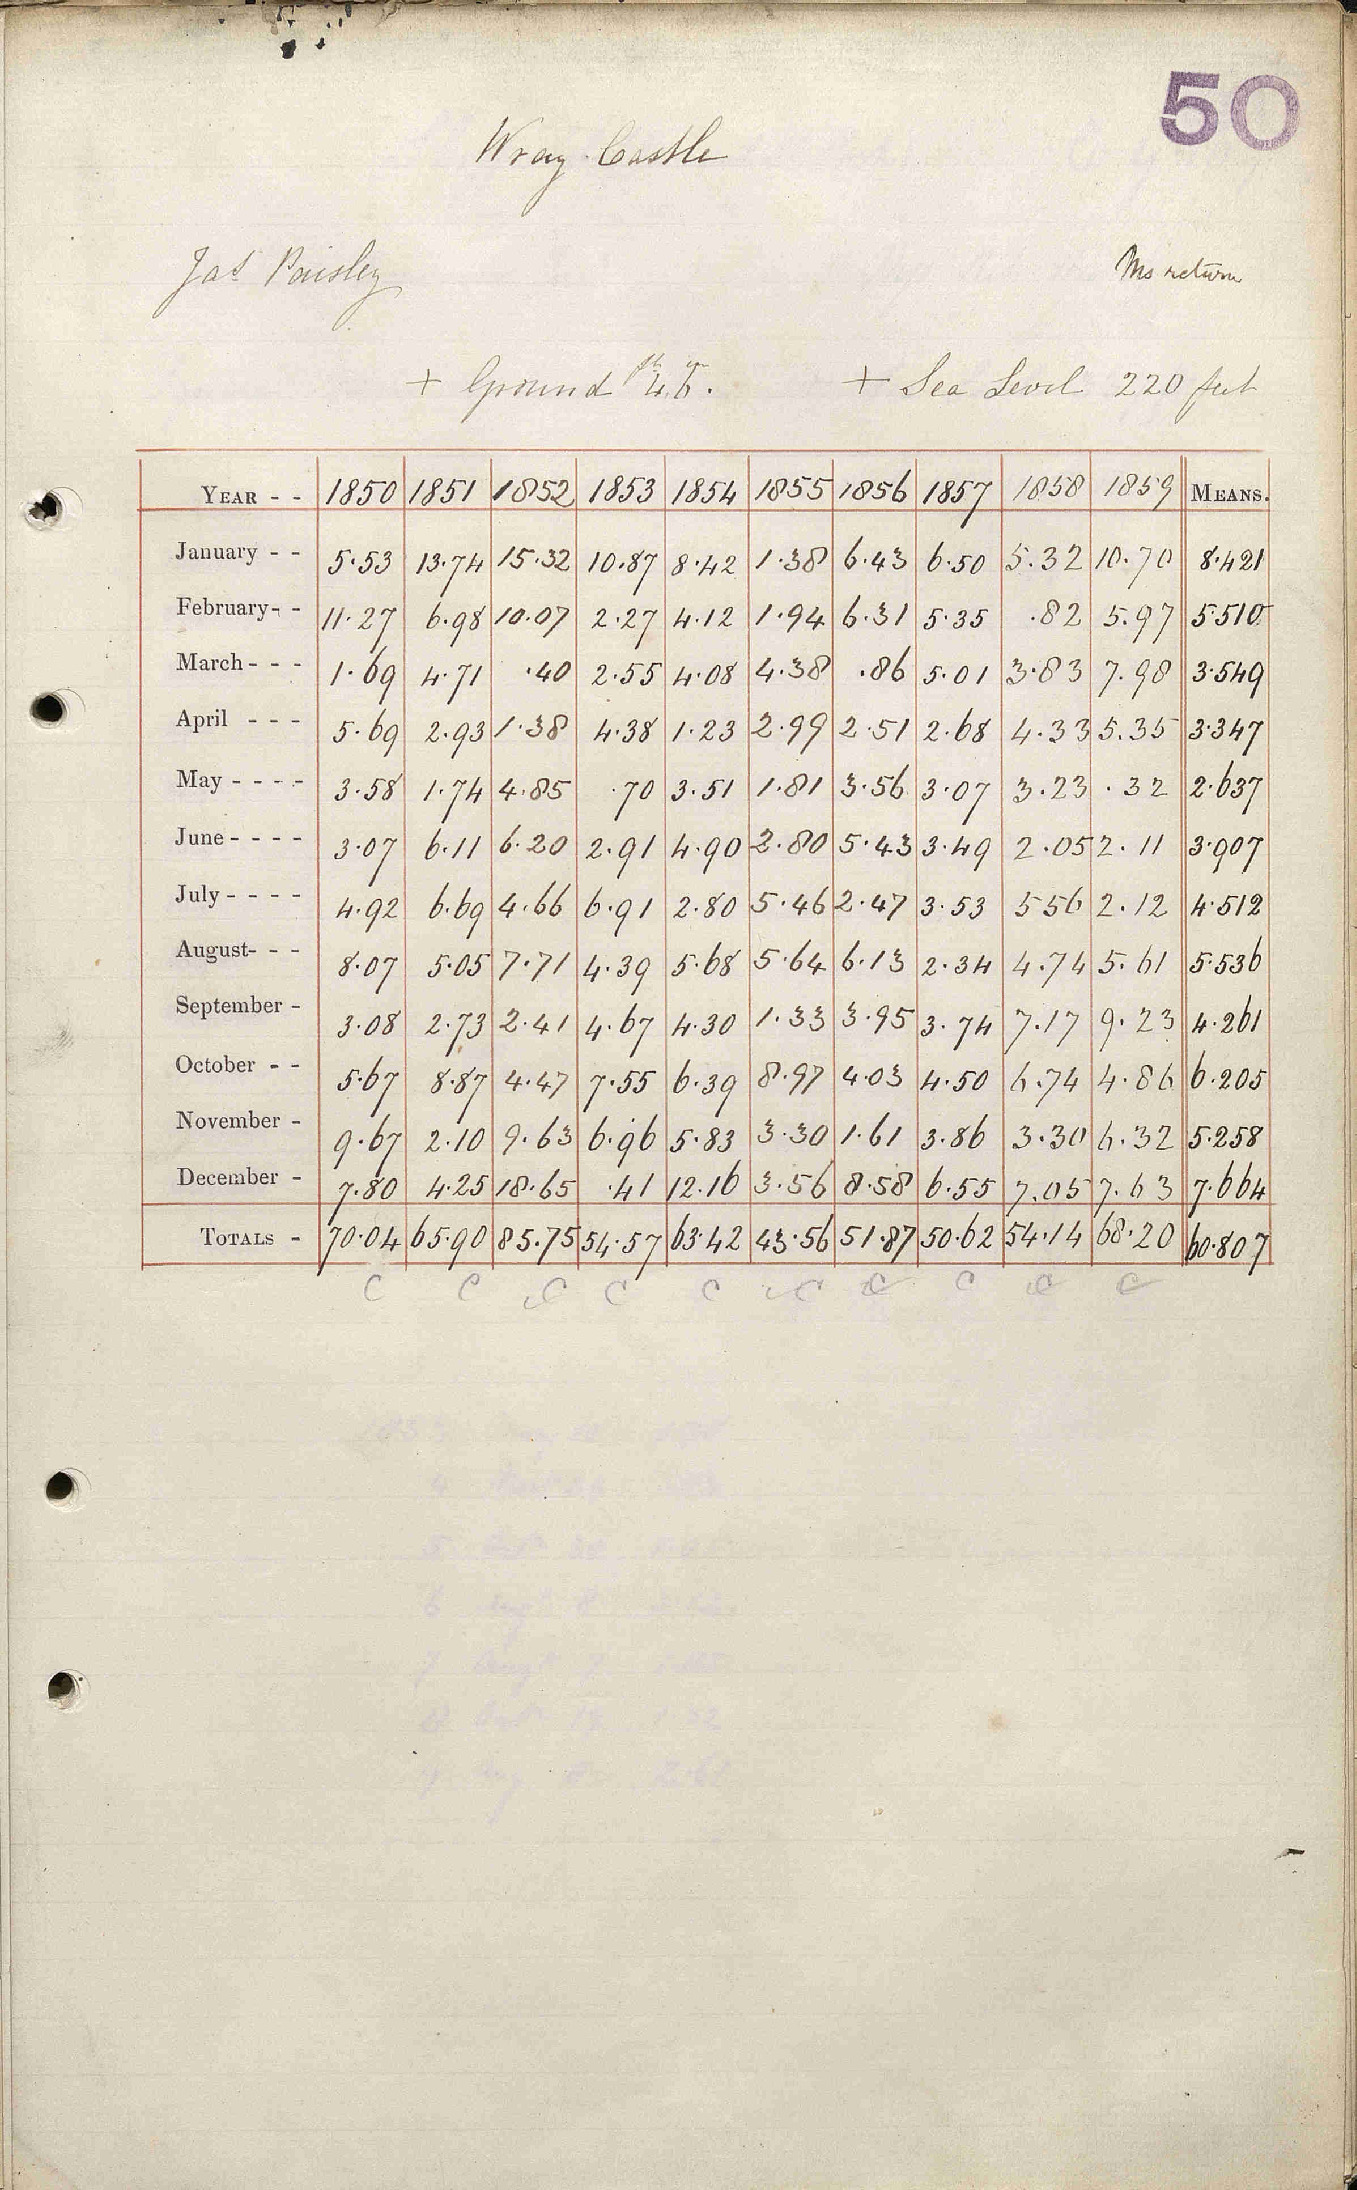 50
Wray Castle
Jas Paisley
Ms return
+ Ground ft 4. in 6. + Sea Level 220 feet
YEAR - - 1850 1851 1852 1853 1854 1855 1856 1857 1858 1859 MEANS.
January - - 5.53 13.74 15.32 10.87 8.42 1.38 6.43 6.50 5.32 10.70 8.421
February- - 11.27 6.98 10.07 2.27 4.12 1.94 6.31 5.35 .82 5.97 5.510
March - - - 1.69 4.71 .40 2.55 4.08 4.38 .86 5.01 3.83 7.98 3.549
April - - - 5.69 2.93 1.38 4.38 1.23 2.99 2.51 2.68 4.33 5.35 3.347
May - - - - 3.58 1.74 4.85 .70 3.51 1.81 3.56 3.07 3.23 .32 2.637
June - - - - 3.07 6.11 6.20 2.91 4.90 2.80 5.43 3.49 2.05 2.11 3.907
July - - - - 4.92 6.69 4.66 6.91 2.80 5.46 2.47 3.53 5 56 2.12 4.512
August- - - 8.07 5.05 7.71 4.39 5.68 5.64 6.13 2.34 4.74 5.61 5.536
September - 3.08 2.73 2.41 4.67 4.30 1.33 3.95 3.74 7.17 9.23 4.261
October - - 5.67 8.87 4.47 7.55 6.39 8.97 4.03 4.50 6.74 4.86 6.205
November - 9.67 2.10 9.63 6.96 5.83 3.30 1.61 3.86 3.30 6.32 5.258
December - 7.80 4.25 18.65 .41 12.16 3.56 8.58 6.55 7.05 7.63 7.664
TOTALS - 70.04 65.90 85.75 54.57 63.42 43.56 51.87 50.62 54.14 68.20 60.807
C C C C C C C C C C